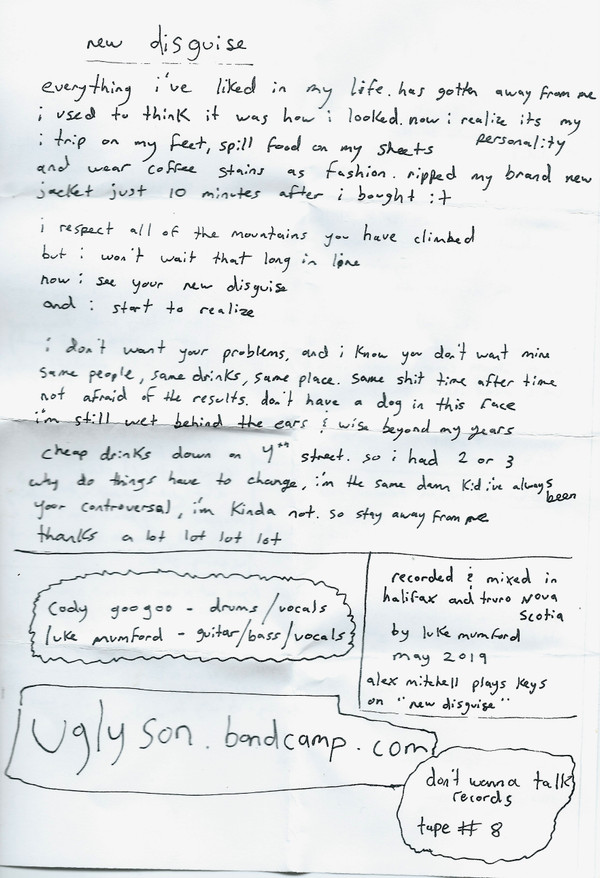 new disguise
everything i've liked in my life. has gotten away from me
i used to think it was how i looked. now i realize its my
personality
i trip on my feet, spill food on my sheets
and wear coffee stains as fashion. ripped my brand new
jacket just 10 minutes after i bought it
i respect all of the mountains you have climbed
but i won't wait that long in line
now i see your new disguise
and i start to realize
i don't want your problems, and i know you don't want mine
same people, same drinks, same place. same shit time after time
not afraid of the results. don't have a dog in this race
i'm still wet behind the ears & wise beyond my years
cheap drinks down on 4th street. so i had 2 or 3
why do things have to change, i'm the same damn kid i've always
been
your controversal, i'm kinda not. so stay away from me
thanks a lot lot lot lot
cody googoo - drums/vocals
luke mumford - guitar/bass/vocals
recorded & mixed in
halifax and truro nova
scotia
by luke mumford
may 2019
alex mitchell plays keys
on "new disguise"
Uglyson.bandcamp.com
don't wanna talk
records
tape # 8